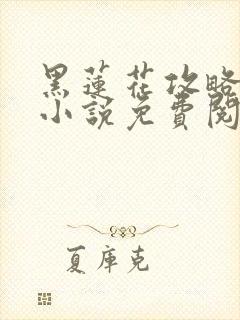 黑蓮花攻略
小說免費閱
夏庫克